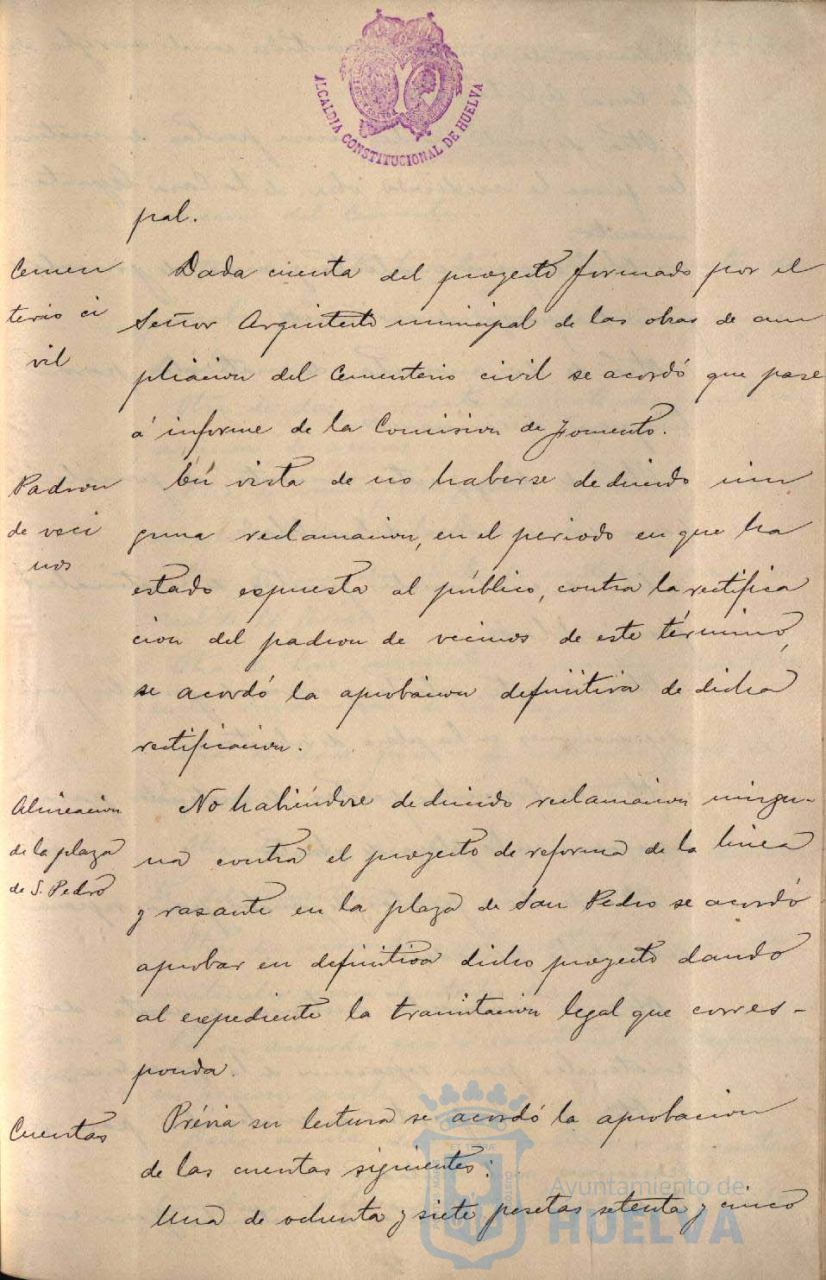 ALCALDIA CONSTITUCIONAL DE HUELVA
pal.
Cemen
terio ci
vil
Dada cuenta del proyecto formado por el
Señor Arquitecto municipal de las obras de am
pliacion del Cementerio civil se acordó que pase
á informe de la Comision de Fomento.
Padron
de veci
nos
En vista de no haberse deducido nin
guna reclamacion, en el periodo en que ha
estado espuesta al público, contra la rectifica
cion del padron de vecinos de este término,
se acordó la aprobacion definitiva de dicha
rectificacion.
Alineacion
de la plaza
de S. Pedro
No habiéndose deducido reclamacion ningu-
na contra el proyecto de reforma de la linea
y rasante en la plaza de San Pedro se acordó
aprobar en definitiva dicho proyecto dando
al expediente la tramitacion legal que corres-
ponda.
Cuentas
Prévia su lectura se acordó la aprobacion
de las cuentas siguientes:
Una de ochenta y siete pesetas setenta y cinco
Ayuntamiento de
HUELVA